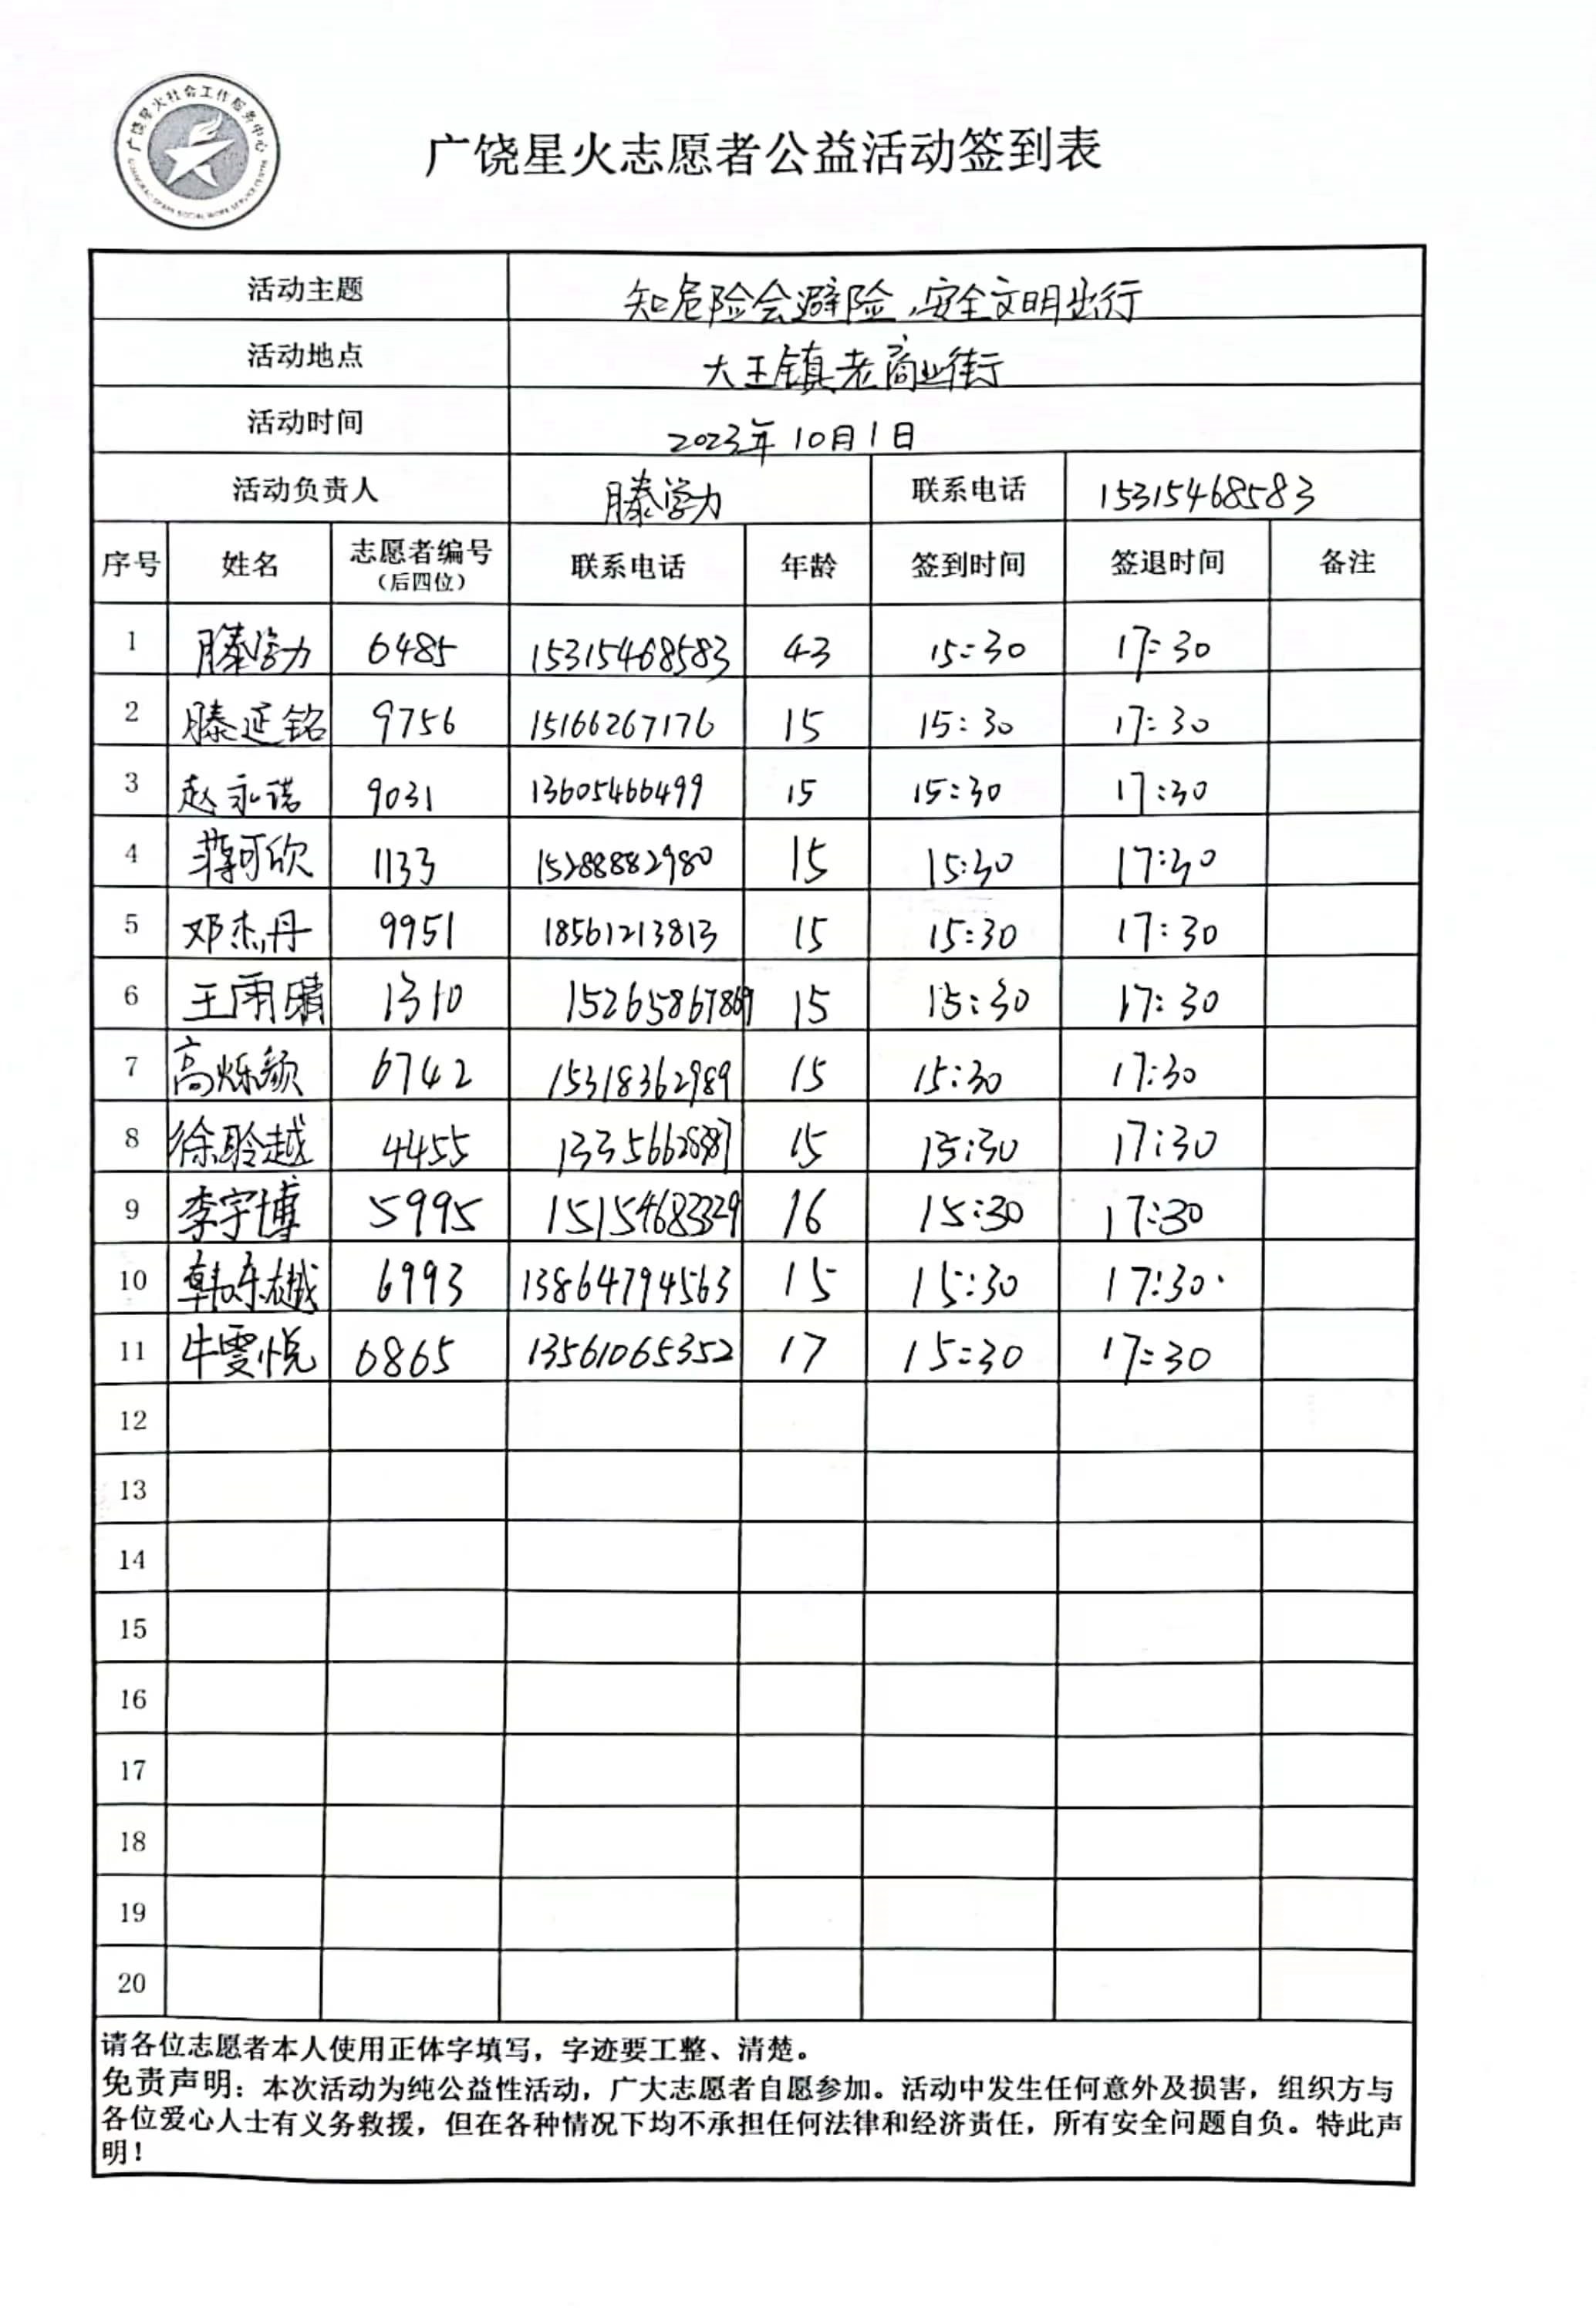 广饶星火社会工作服务中心
广饶星火志愿者公益活动签到表
活动主题 知危险会避险,安全文明出行
活动地点 大王镇老商业街
活动时间 2023年10月1日
活动负责人 滕学力 联系电话 15315468583
序号 姓名 志愿者编号（后四位） 联系电话 年龄 签到时间 签退时间 备注
1 滕学力 6485 15315468583 43 15:30 17:30
2 滕延铭 9756 15166267176 15 15:30 17:30
3 赵永诺 9031 13605466499 15 15:30 17:30
4 蒋可欣 1133 15288882980 15 15:30 17:30
5 邓杰丹 9951 18561213813 15 15:30 17:30
6 王雨晴 1310 15265867869 15 15:30 17:30
7 高烁颜 6742 15318362989 15 15:30 17:30
8 徐聆越 4455 15 15:30 17:30
9 李宇博 5995 15154683329 16 15:30 17:30
10 韩乐樾 6993 13864794563 15 15:30 17:30
11 牛雯悦 6865 13561065352 17 15:30 17:30
12
13
14
15
16
17
18
19
20
请各位志愿者本人使用正体字填写，字迹要工整、清楚。
免责声明：本次活动为纯公益性活动，广大志愿者自愿参加。活动中发生任何意外及损害，组织方与
各位爱心人士有义务救援，但在各种情况下均不承担任何法律和经济责任，所有安全问题自负。特此声
明！